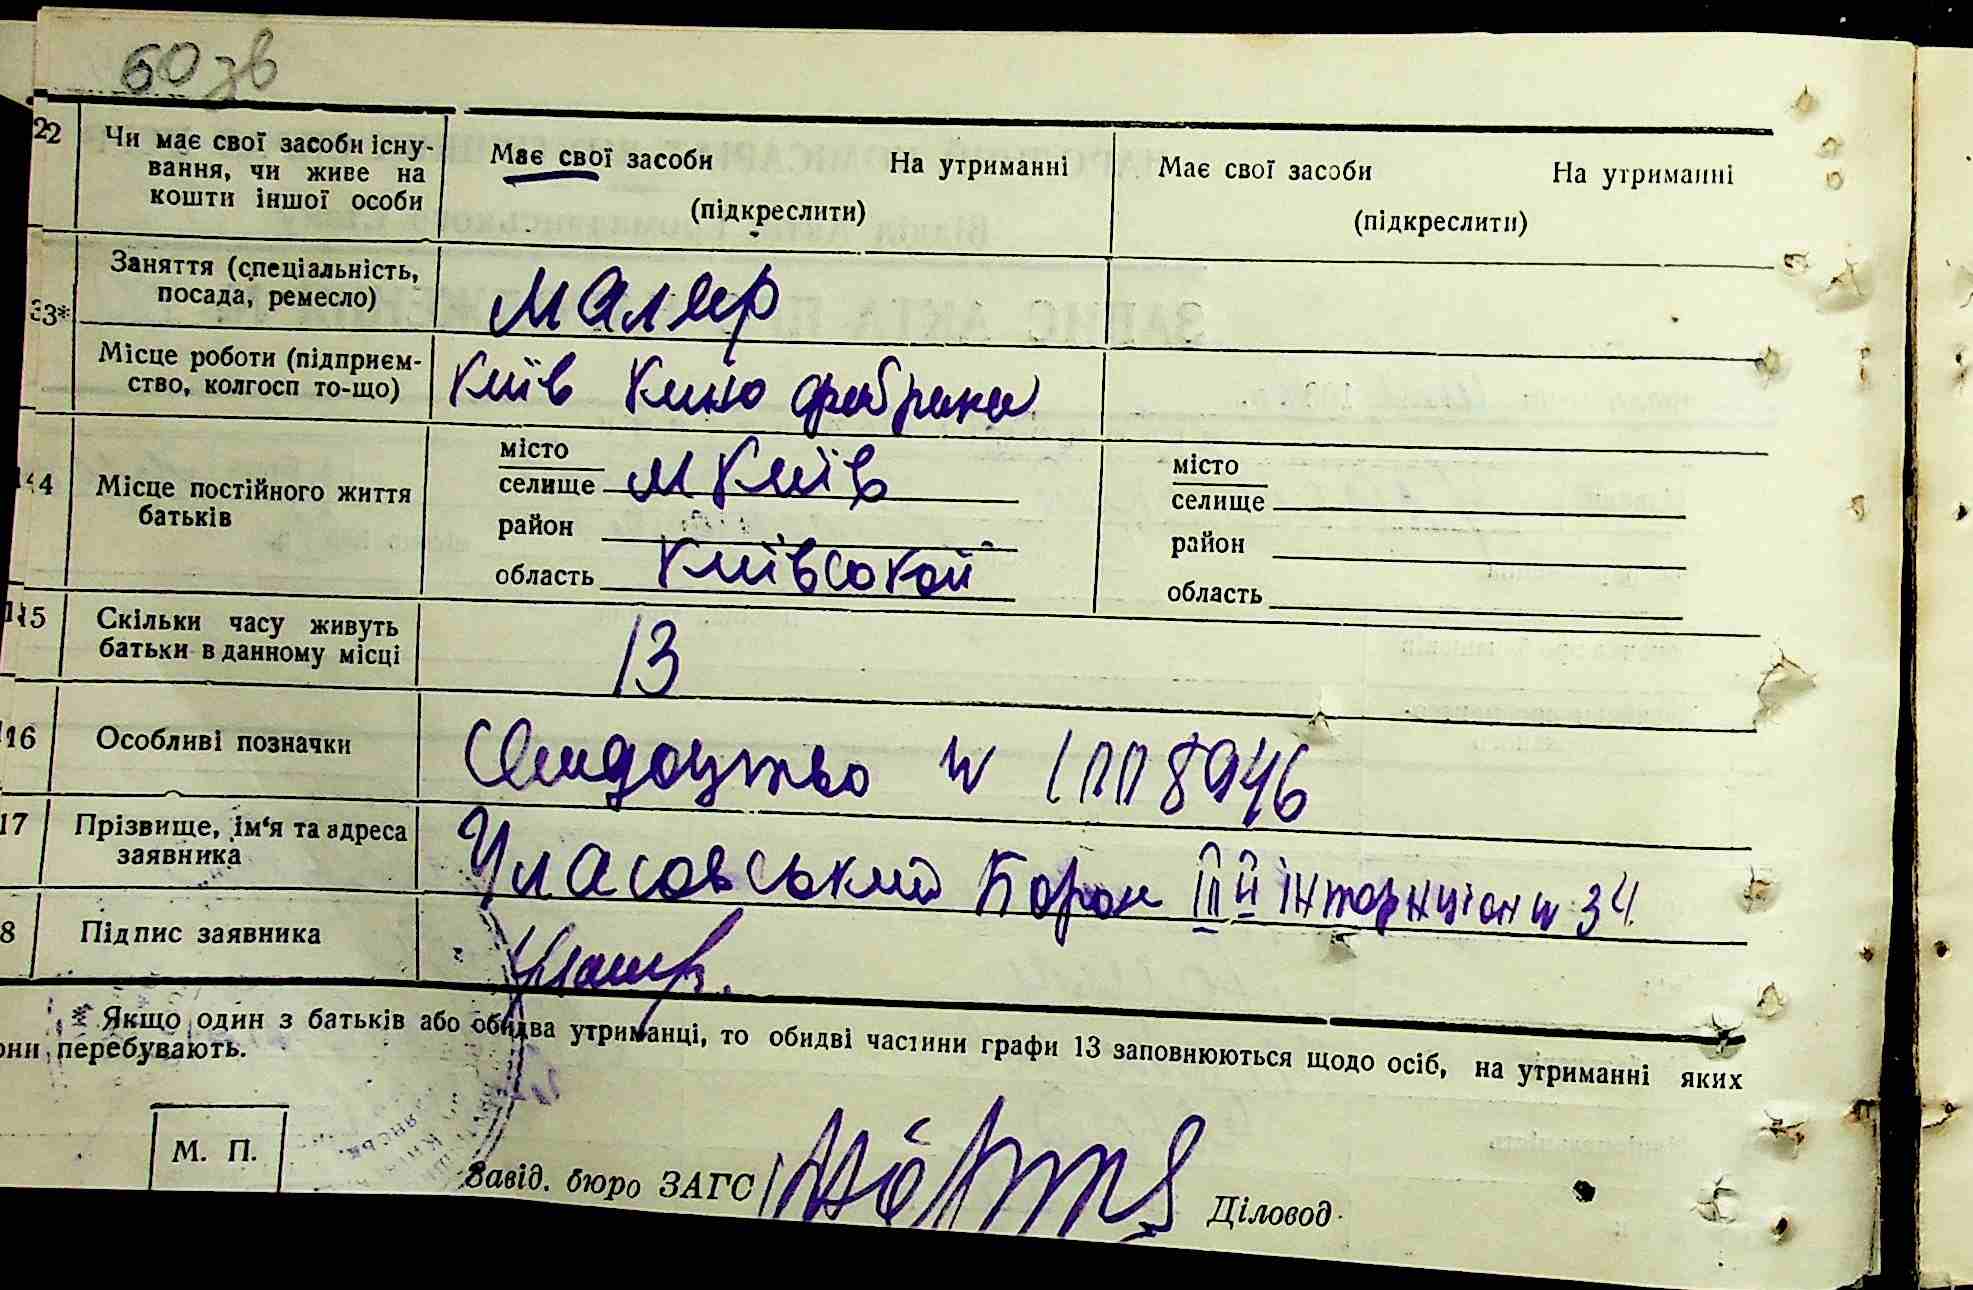 60 зв
22 Чи має свої засоби існу-
вання, чи живе на
кошти іншої особи
Має свої засоби На утриманні
(підкреслити)
Має свої засоби На утриманні
(підкреслити)
33* Заняття (спеціальність,
посада, ремесло)
маляр
Місце роботи (підприєм-
ство, колгосп то-що)
Київ Кино фабрика
44 Місце постійного життя
батьків
місто
селище м Київ
район
область Київсокой
місто
селище
район
область
15 Скільки часу живуть
батьки в данному місці
13
16 Особливі позначки
Свидоцтво №
17 Прізвище, ім'я та адреса
заявника
34
8 Підпис заявника
* Якщо один з батьків або обидва утриманці, то обидві частини графи 13 заповнюються щодо осіб, на утриманні яких
они перебувають.
М. П.
Завід. бюро ЗАГС
Діловод